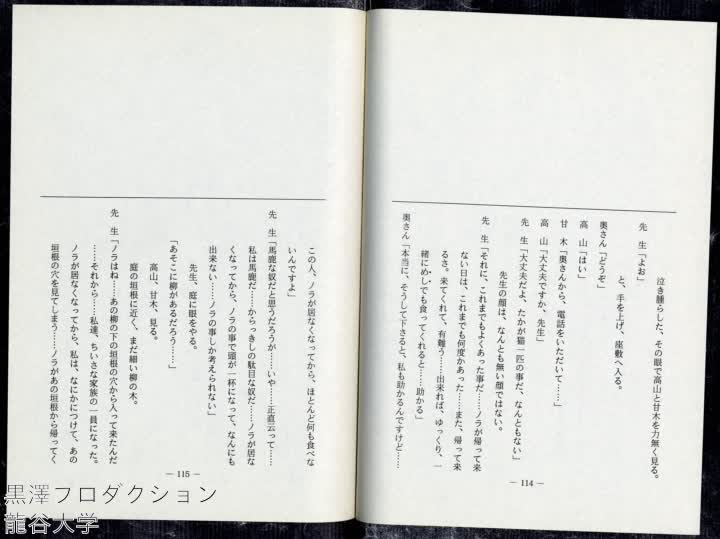 泣き腫らした、その眼で高山と甘木を力無く見る。
先　生「よお」
と、手を上げ、座敷へ入る。
奥さん「どうぞ」
高　山「はい」
甘　木「奥さんから、電話をいただいて……」
高　山「大丈夫ですか、先生」
先　生「大丈夫だよ、たかが猫一匹の事だ、なんともない」
先生の顔は、なんとも無い顔ではない。
先　生「それに、これまでもよくあった事だ……ノラが帰って来
ない日は、これまでも何度かあった……また、帰って来
るさ。来てくれて、有難う……出来れば、ゆっくり、一
緒にめしでも食ってくれると……助かる」
奥さん「本当に、そうして下さると、私も助かるんですけど……
― 114 ―
この人、ノラが居なくなってから、ほとんど何も食べな
いんですよ」
先　生「馬鹿な奴だと思うだろうが……いや……正直云って……
私は馬鹿だ……からっきしの駄目な奴だ……ノラが居な
くなってから、ノラの事で頭が一杯になって、なんにも
出来ない……ノラの事しか考えられない」
先生、庭に眼をやる。
「あそこに柳があるだろう……」
高山、甘木、見る。
庭の垣根に近く、まだ細い柳の木。
先　生「ノラはね……あの柳の下の垣根の穴から入って来たんだ
……それから……私達、ちいさな家族の一員になった。
ノラが居なくなってから、私は、なにかにつけて、あの
垣根の穴を見てしまう……ノラがあの垣根から帰ってく
― 115 ―
黒澤プロダクション
龍谷大学